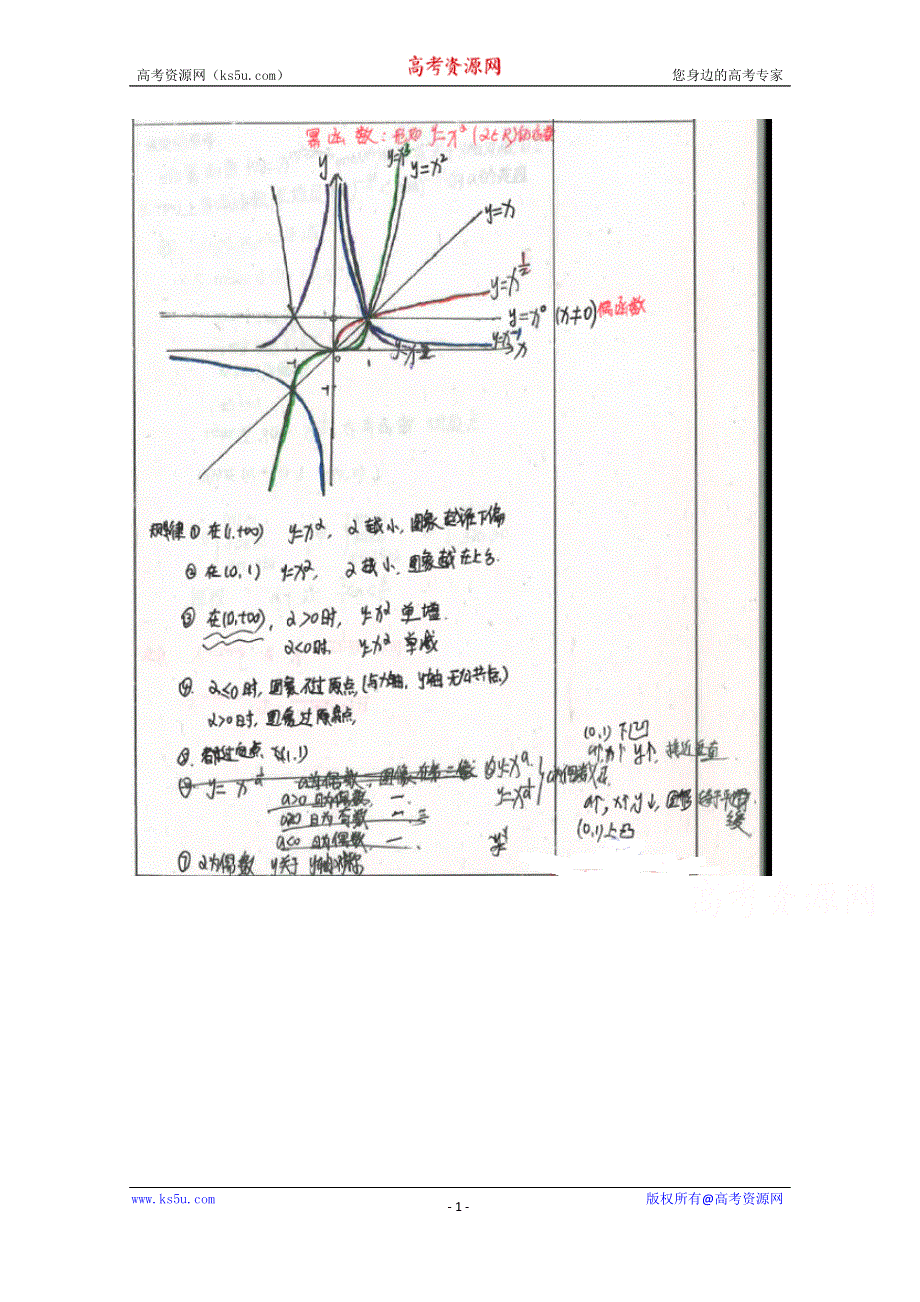 高考资源网（ks5u.com）
高考资源网
您身边的高考专家
幂函数：形如 y=x^α (α∈R)的函数
y
y=x³
y=x²
y=x
y=x^½
y=x⁰ (x≠0) 偶函数
y=x⁻¹
x
-1 0 1
-1
规律 ① 在(1,+∞) y=x^α, α越小, 图象越往下偏
② 在(0,1) y=x^α, α越小, 图象越在上方.
③ 在(0,+∞), α>0时, y=x^α 单增.
α<0时, y=x^α 单减
④. α<0时, 图象不过原点,(与x轴, y轴无公共点)
α>0时, 图象过原点,
⑤. 都过定点 (1,1)
a>0 且为偶数, 一
a>0 且为奇数 一 三
a<0 且为偶数, 一
⑦ α为偶数 y关于y轴对称
(0,1) 下凹
a↑, x↑ y↑, 接近垂直
a↑, x↑, y↓,
缓
(0,1)上凸
高考资源网
www.ks5u.com
- 1 -
版权所有@高考资源网